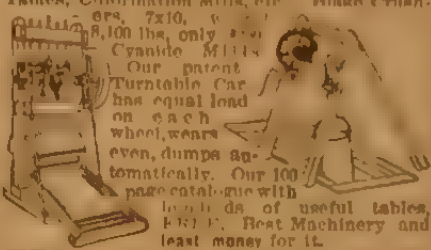 Tables, Combination Mills, etc. Blake Crush-
ers, 7x10,
8,100 lbs, only
Cyanide Mills
Our patent
Turntable Car
has equal load
on each
wheel, wears
even, dumps au-
tomatically. Our 100
page catalogue with
of useful tables,
FREE. Best Machinery and
least money for it.